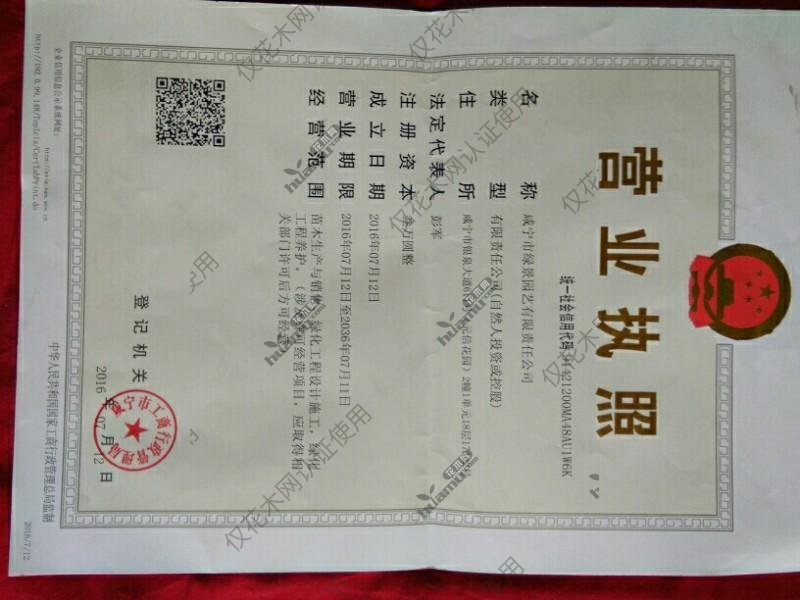 营业执照
统一社会信用代码 91421200MA48AU1W6K
名称 咸宁市绿景园艺有限责任公司
类型 有限责任公司(自然人投资或控股)
住所 咸宁市银泉大道6 元佰花园）2幢1单元18层17
法定代表人 彭军
注册资本 叁万圆整
成立日期 2016年07月12日
营业期限 2016年07月12日至2036年07月11日
经营范围 苗木生产与销售，绿化工程设计施工，绿化
工程养护。（涉及许可经营项目，应取得相
关部门许可后方可经营）
登记机关
咸宁市工商行政管理局
2016年07月12日
企业信用信息公示系统网址：
http://192.0.99.148/TopIcis/CertTabPrint.do
中华人民共和国国家工商行政管理总局监制
2016/7/12
仅花木网认证使用
仅花木网认证使用
仅花木网认证使用
仅花木网认证使用
花木网
huamu.com
花木网
huamu.com
花木网
huamu.com